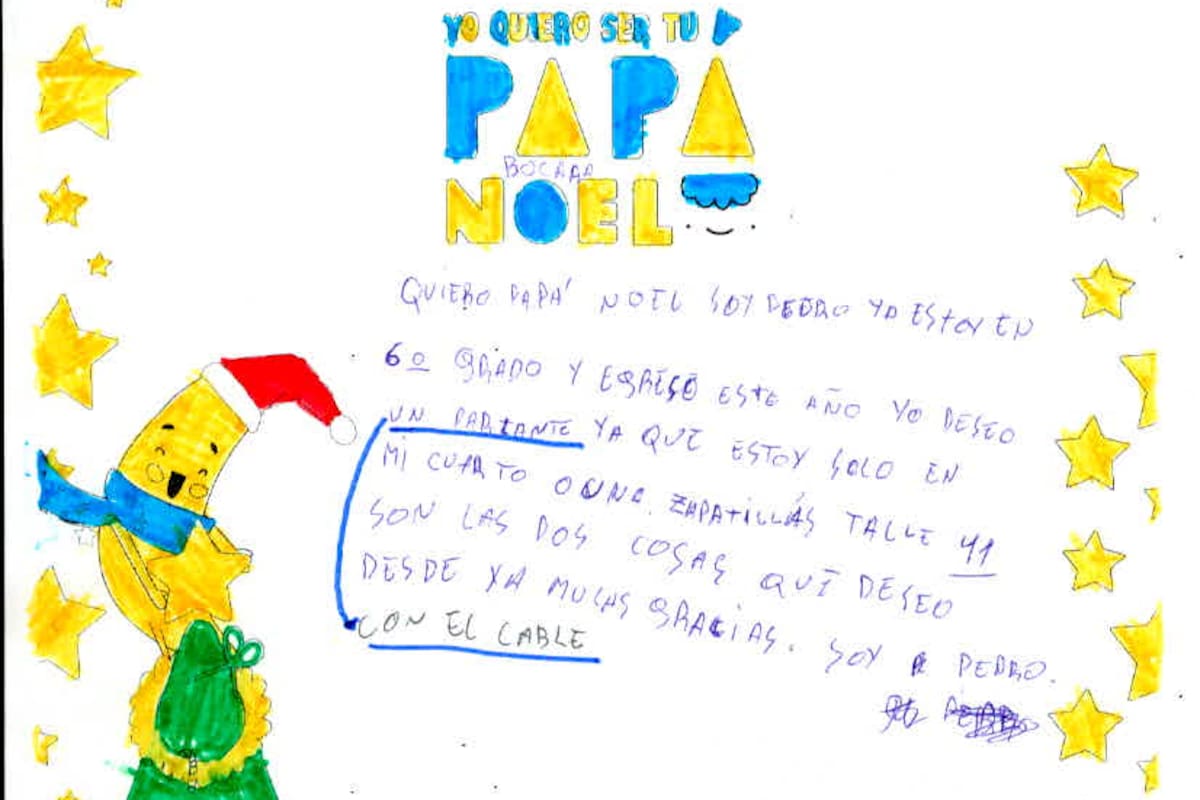 YO QUIERO SER TU
PAPA
BOCARA
NOEL
QUIERO PAPA' NOEL SOY PEDRO YA ESTOY EN
6º GRADO Y EGRESÉ ESTE AÑO YO DESEO
UN PARLANTE YA QUE ESTOY SOLO EN
MI CUARTO O UNA. ZAPATILLAS TALLE 41
SON LAS DOS COSAS QUE DESEO
DESDE YA MUCHAS GRACIAS. SOY PEDRO.
CON EL CABLE